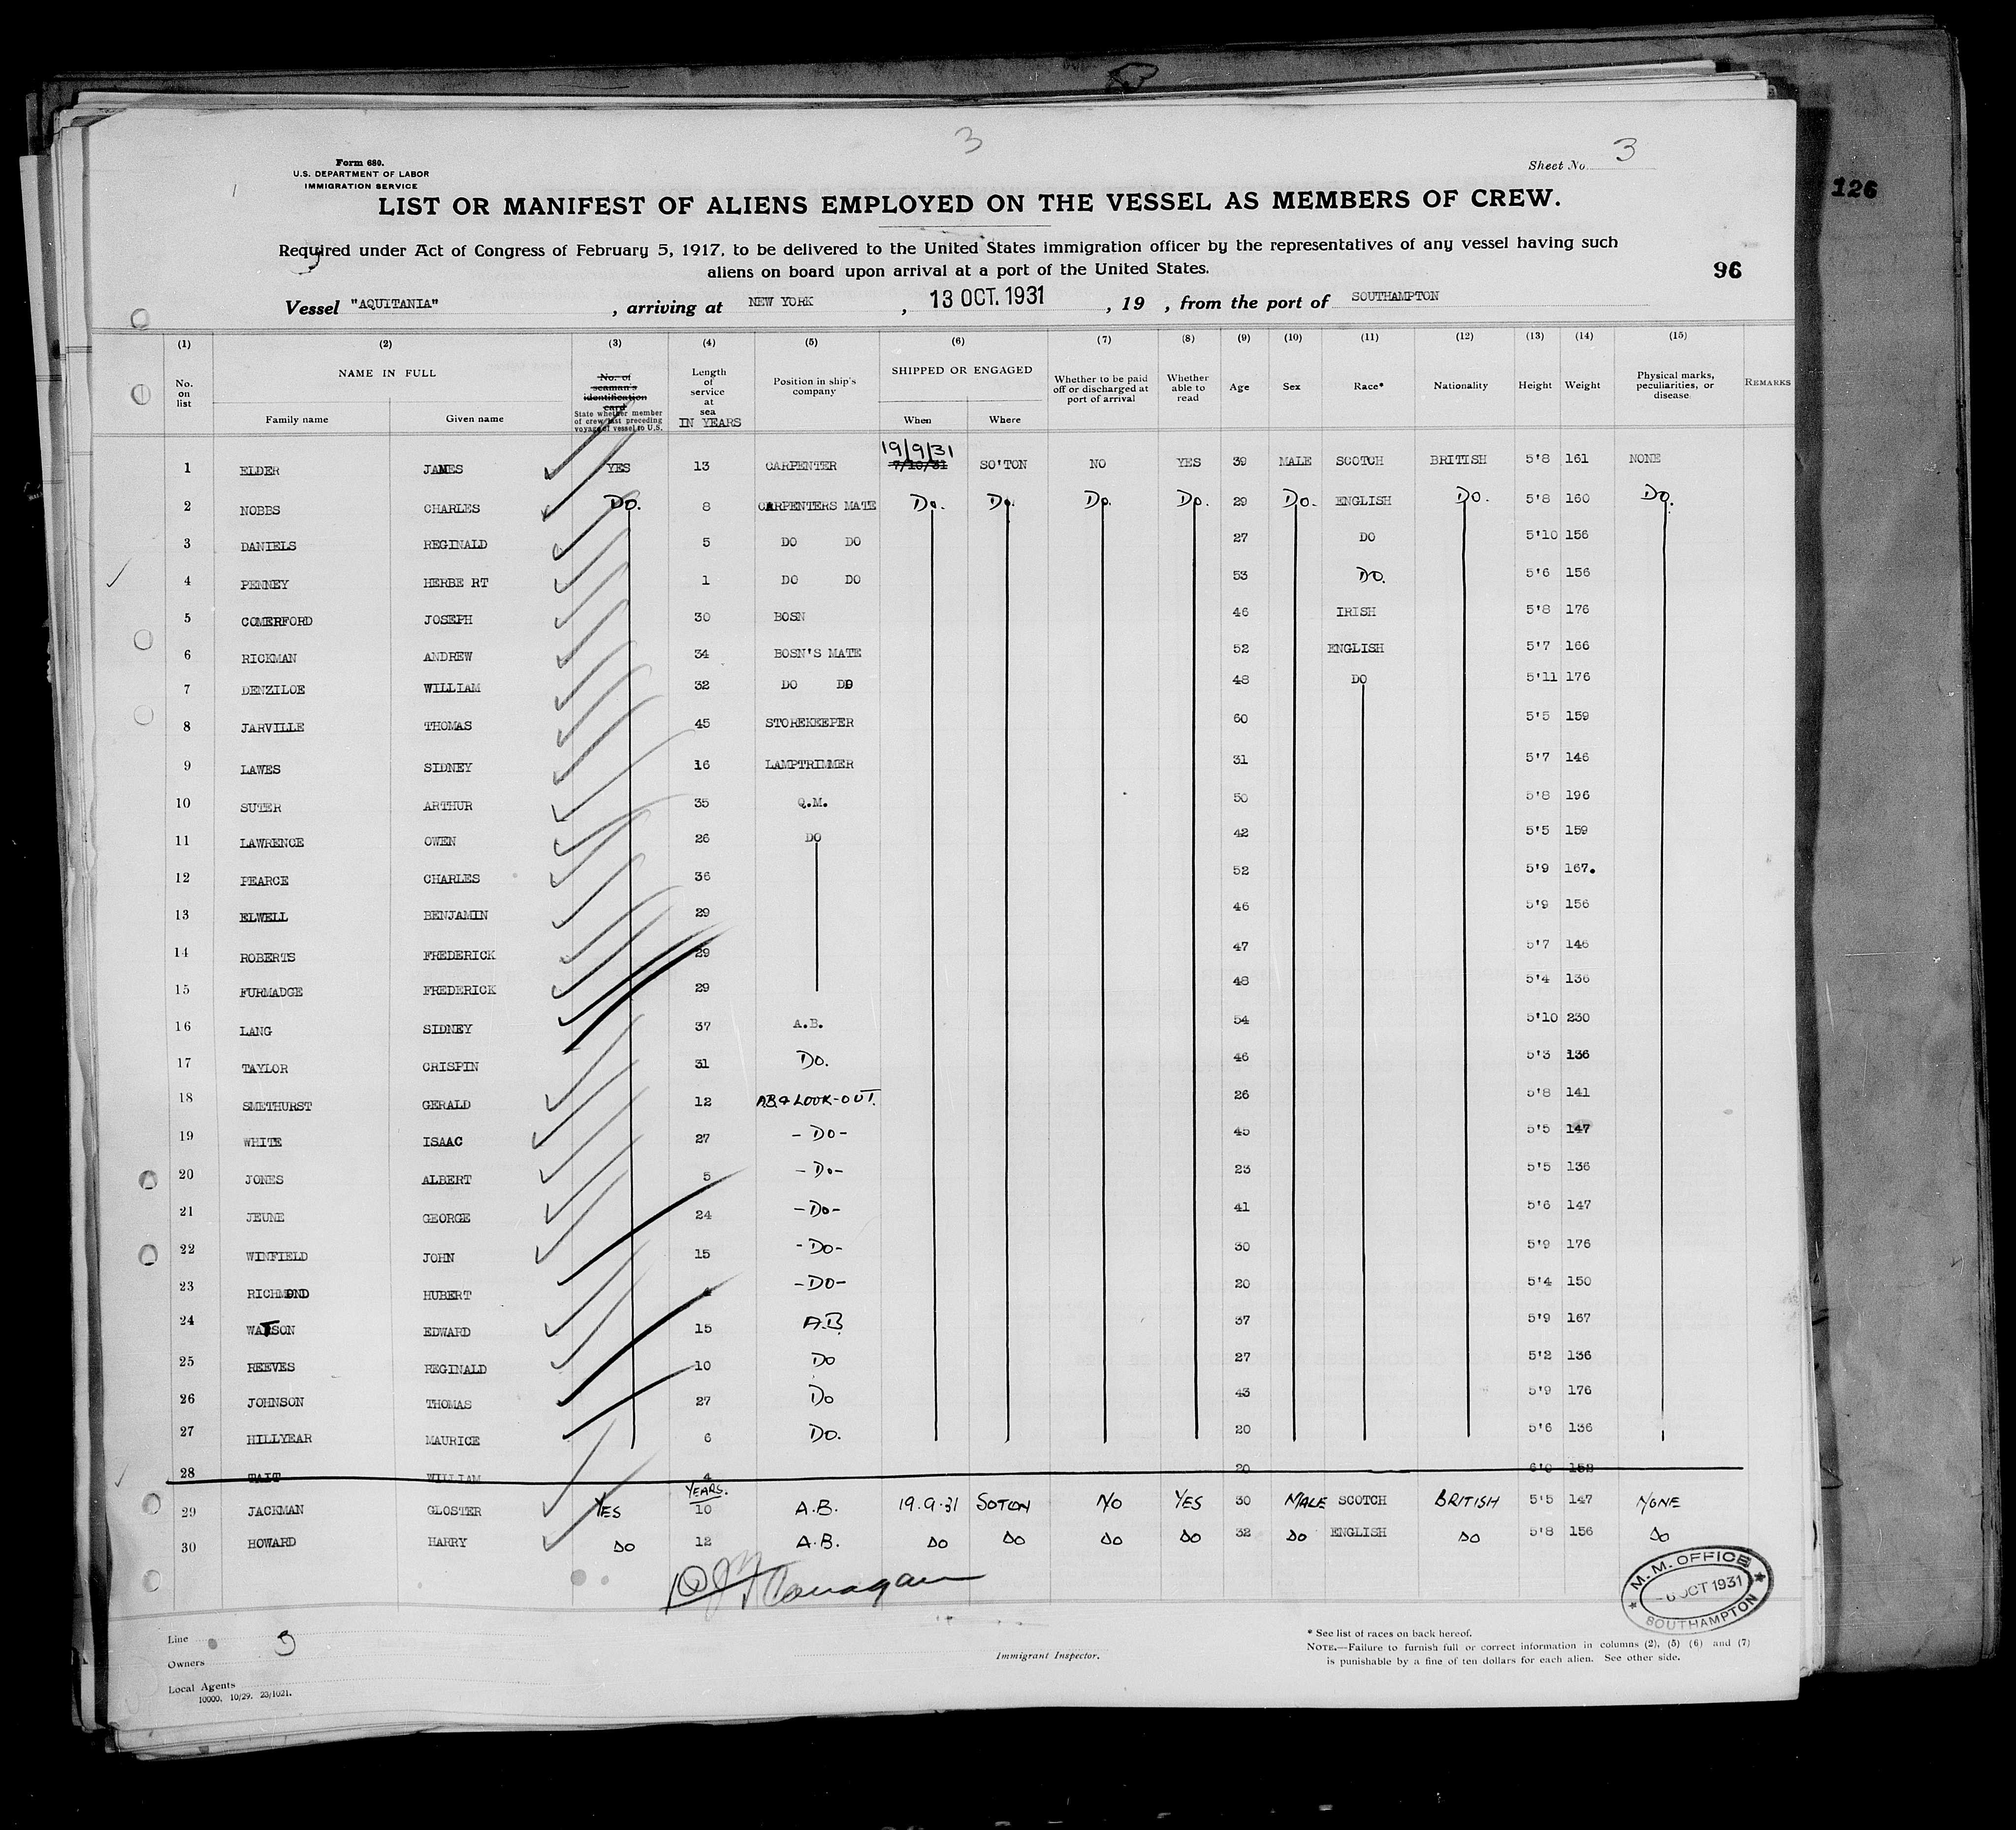 3
Form 680.
U.S. DEPARTMENT OF LABOR
IMMIGRATION SERVICE
Sheet No. 3
126
LIST OR MANIFEST OF ALIENS EMPLOYED ON THE VESSEL AS MEMBERS OF CREW.
Required under Act of Congress of February 5, 1917, to be delivered to the United States immigration officer by the representatives of any vessel having such
aliens on board upon arrival at a port of the United States.
96
Vessel "AQUITANIA" , arriving at NEW YORK , 13 OCT. 1931 , 19 , from the port of SOUTHAMPTON
(1) (2) (3) (4) (5) (6) (7) (8) (9) (10) (11) (12) (13) (14) (15)
No. on list NAME IN FULL Family name Given name No. of seaman's identification card State whether member of crew last preceding voyage of vessel to U.S. Length of service at sea IN YEARS Position in ship's company SHIPPED OR ENGAGED When Where Whether to be paid off or discharged at port of arrival Whether able to read Age Sex Race* Nationality Height Weight Physical marks, peculiarities, or disease. REMARKS
19/9/31
1 ELDER JAMES YES 13 CARPENTER 7/10/31 SO'TON NO YES 39 MALE SCOTCH BRITISH 5'8 161 NONE
2 NOBBS CHARLES Do. 8 CARPENTERS MATE Do. Do. Do. Do. 29 Do. ENGLISH Do. 5'8 160 Do.
3 DANIELS REGINALD 5 DO DO 27 DO 5'10 156
4 PENNEY HERBE RT 1 DO DO 53 Do. 5'6 156
5 COMERFORD JOSEPH 30 BOSN 46 IRISH 5'8 176
6 RICKMAN ANDREW 34 BOSN'S MATE 52 ENGLISH 5'7 166
7 DENZILOE WILLIAM 32 DO DO 48 DO 5'11 176
8 JARVILLE THOMAS 45 STOREKEEPER 60 5'5 159
9 LAWES SIDNEY 16 LAMPTRIMMER 31 5'7 146
10 SUTER ARTHUR 35 Q.M. 50 5'8 196
11 LAWRENCE OWEN 26 DO 42 5'5 159
12 PEARCE CHARLES 36 52 5'9 167.
13 ELWELL BENJAMIN 29 46 5'9 156
14 ROBERTS FREDERICK 29 47 5'7 146
15 FURMADGE FREDERICK 29 48 5'4 136
16 LANG SIDNEY 37 A.B. 54 5'10 230
17 TAYLOR CRISPIN 31 Do. 46 5'3 136
18 SMETHURST GERALD 12 AB & LOOK-OUT. 26 5'8 141
19 WHITE ISAAC 27 -Do- 45 5'5 147
20 JONES ALBERT 5 -Do- 23 5'5 136
21 JEUNE GEORGE 24 -Do- 41 5'6 147
22 WINFIELD JOHN 15 -Do- 30 5'9 176
23 RICHMOND HUBERT -Do- 20 5'4 150
24 WATSON EDWARD 15 A.B. 37 5'9 167
25 REEVES REGINALD 10 Do 27 5'2 136
26 JOHNSON THOMAS 27 Do 43 5'9 176
27 HILLYEAR MAURICE 6 Do. 20 5'6 136
28 TAIT WILLIAM 4 20 6'0 152
YEARS.
29 JACKMAN GLOSTER YES 10 A.B. 19.9.31 SOTON NO YES 30 MALE SCOTCH BRITISH 5'5 147 NONE
30 HOWARD HARRY Do 12 A.B. Do Do Do Do 32 Do ENGLISH Do 5'8 156 Do
M. M. OFFICE
OCT 1931
SOUTHAMPTON
Line
Owners
Local Agents
10000. 10/29. 23/1021.
Immigrant Inspector.
* See list of races on back hereof.
NOTE.—Failure to furnish full or correct information in columns (2), (5) (6) and (7)
is punishable by a fine of ten dollars for each alien. See other side.